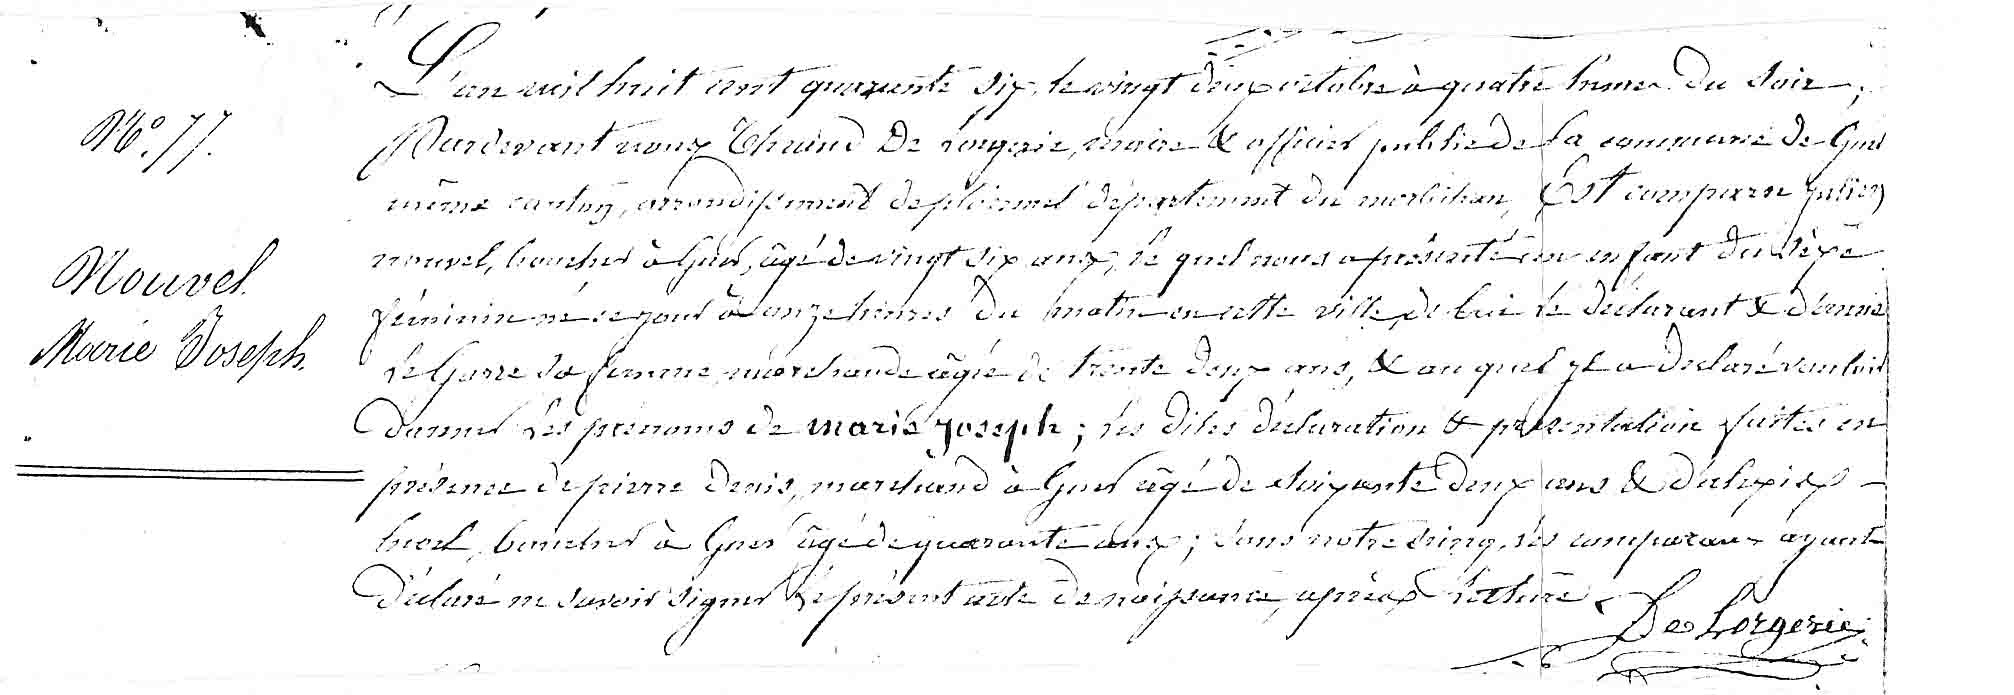 N.° 77.
Nouvel
Marie Joseph.
L'an mil huit cent quarante six, le vingt deux octobre à quatre heures du soir,
Pardevant nous De Lorgerie, maire & officier public de la commune de Guer
même canton, arrondissement de ploërmel département du morbihan, Est comparu julien
nouvel, boucher à Guer, âgé de vingt six ans, le quel nous a présenté un enfant du sèxe
féminin né ce jour à onze heures du matin en cette ville, de lui le déclarant & d'anne
Le Garre sa femme, marchande âgée de trente deux ans, & au quel il a déclaré vouloir
donner les prénoms de marie joseph; les dites déclaration & présentation faites en
présence de pierre denis, marchand à Guer âgé de soixante deux ans & d'alexis
boucher à Guer âgé de quarante ans; sous notre seing, les comparans ayant
déclaré ne savoir signer le présent acte de naissance, après lecture.
De Lorgerie